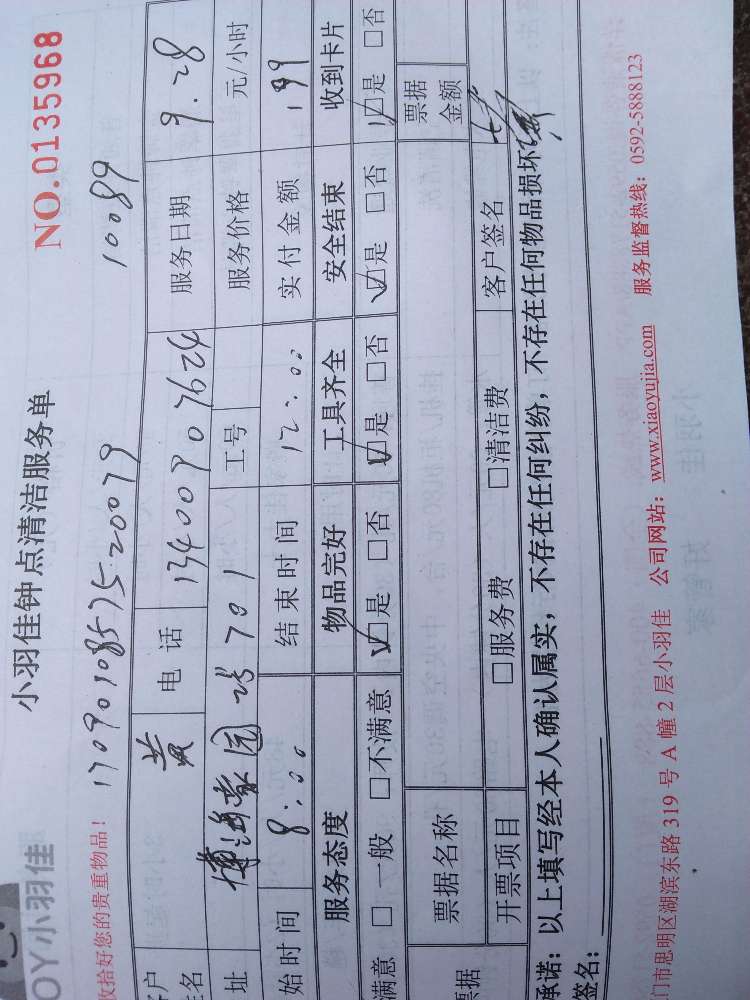 OY小羽佳
小羽佳钟点清洁服务单
NO.0135968
收拾好您的贵重物品！ 1709010857520079 10089
客户姓名 黄 电话 13400907624 服务日期 9.28
址 博海豪园 701 工号 服务价格 元/小时
始时间 8:00 结束时间 12:00 实付金额 199
服务态度 物品完好 工具齐全 安全结束 收到卡片
满意 □一般 □不满意 ☑是 □否 ☑是 □否 ☑是 □否 ☑是 □否
票据 票据名称 票据金额
开票项目 □服务费 □清洁费 客户签名
承诺：以上填写经本人确认属实，不存在任何纠纷，不存在任何物品损坏
签名：
门市思明区湖滨东路 319 号 A 幢 2 层小羽佳 公司网站：www.xiaoyujia.com 服务监督热线：0592-5888123